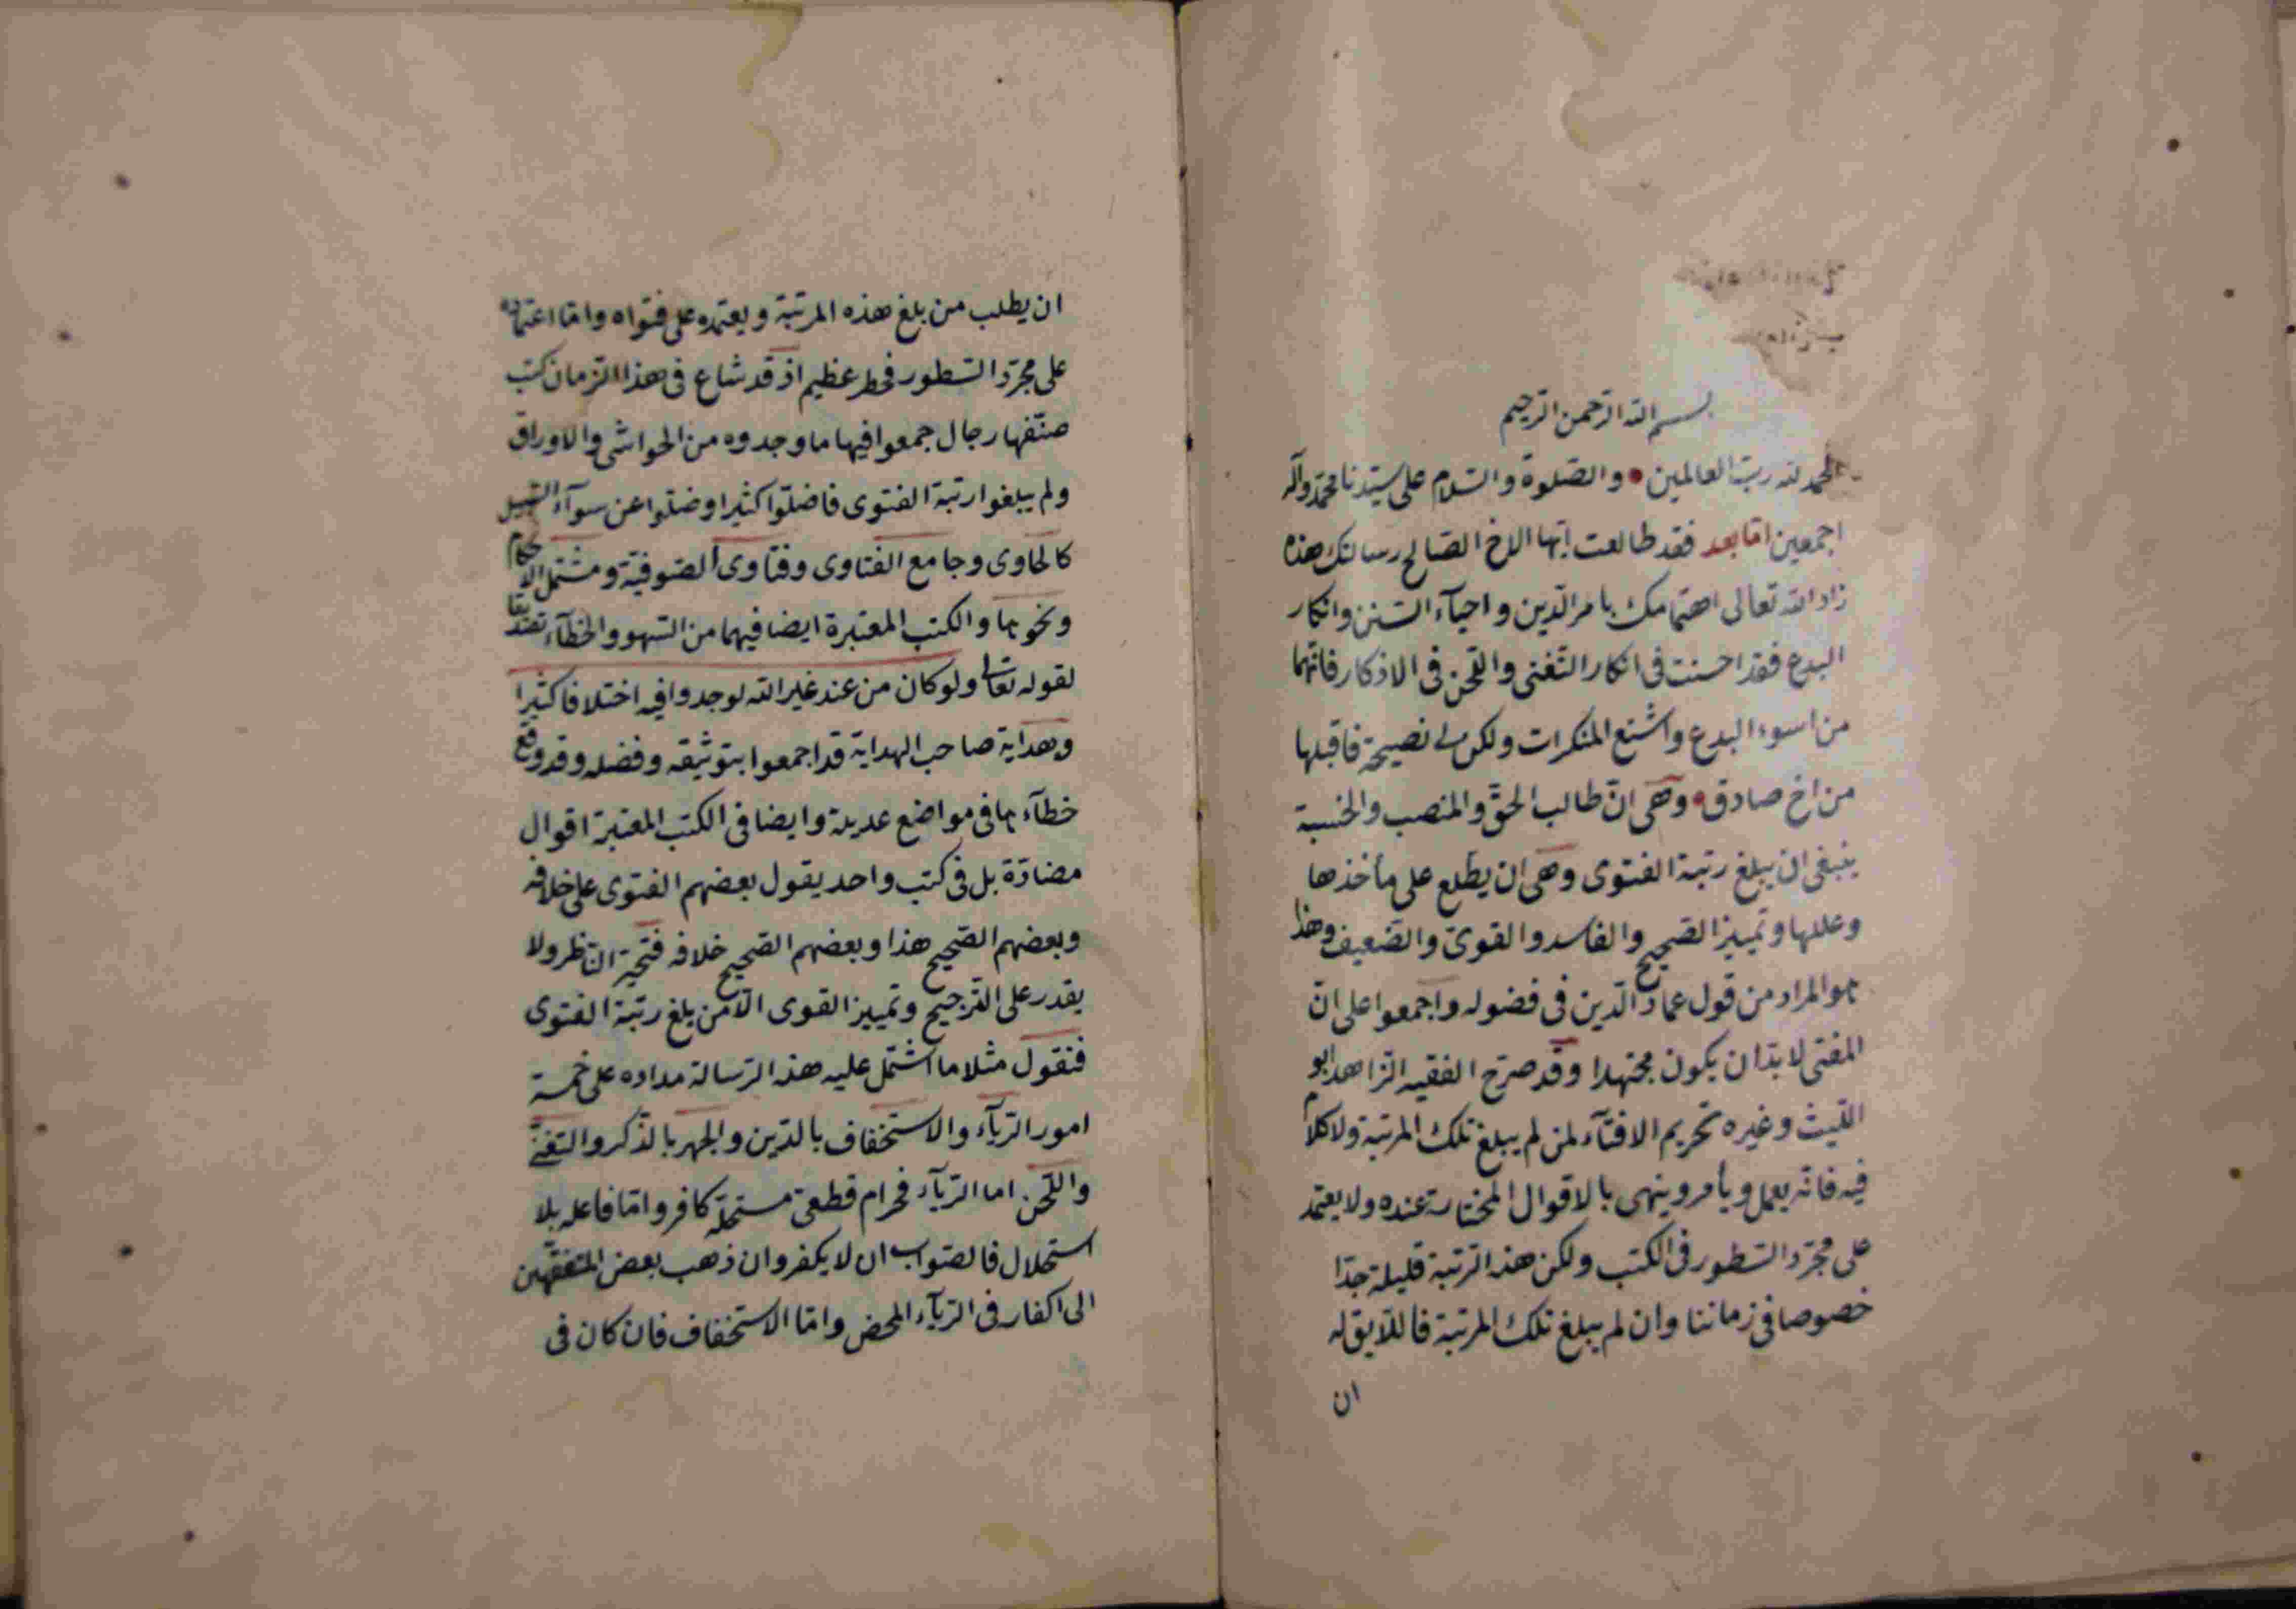 بسم الله الرحمن الرحيم
الحمد لله رب العالمين والصلوة والسلام على سيدنا محمد وآله
اجمعين اما بعد فقد طالعت ايها الاخ الصالح رسالتك هذه
زاد الله تعالى اهتمامك بامر الدين واحياء السنن وانكار
البدع فقد احسنت فى انكار التغنى واللحن فى الاذكار فانهما
من اسوء البدع واشنع المنكرات ولكن لى نصيحة فاقبلها
من اخ صادق وهى ان طالب الحق والمنصب والحسبة
ينبغى ان يبلغ رتبة الفتوى وهى ان يطلع على مأخذها
وعللها وتمييز الصحيح والفاسد والقوى والضعيف وهذا
هو المراد من قول عماد الدين فى فصوله واجمعوا على ان
المفتى لا بد ان يكون مجتهدا وقد صرح الفقيه الزاهد ابو
الليث وغيره تحريم الافتآء لمن لم يبلغ تلك المرتبة ولا كلام
فيه فانه يعمل ويأمر وينهى بالاقوال المختارة عنده ولا يعتمد
على مجرد السطور فى الكتب ولكن هذه الرتبة قليلة جدا
خصوصا فى زماننا وان لم يبلغ تلك المرتبة فاللايق له
ان
ان يطلب من بلغ هذه المرتبة ويعتمد على فتواه واما اعتماده
على مجرد السطور فخطر عظيم اذ قد شاع فى هذا الزمان كتب
صنفها رجال جمعوا فيها ما وجدوه من الحواشى والاوراق
ولم يبلغوا رتبة الفتوى فاضلوا كثيرا وضلوا عن سوآء السبيل
كالحاوى وجامع الفتاوى وفتاوى الصوفية ومشتمل الاحكام
ونحوها والكتب المعتبرة ايضا فيهما من السهو والخطآء تصديقا
لقوله تعالى ولو كان من عند غير الله لوجدوا فيه اختلافا كثيرا
وهداية صاحب الهداية قد اجمعوا بتوثيقه وفضله وقد وقع
خطآءها فى مواضع عديدة وايضا فى الكتب المعتبرة اقوال
مضادة بل فى كتب واحد يقول بعضهم الفتوى على خلافه
وبعضهم الصحيح هذا وبعضهم الصحيح خلافه فتحير الناظر ولا
يقدر على الترجيح وتمييز القوى الا من بلغ رتبة الفتوى
فنقول مثلا ما اشتمل عليه هذه الرسالة مداده على خمسة
امور الريآء والاستخفاف بالدين والجهر بالذكر والتغنى
واللحن اما الريآء فحرام قطعى مستحله كافر واما فاعله بلا
استحلال فالصواب ان لا يكفر وان ذهب بعض المتفقهين
الى اكفاره فى الريآء المحض واما الاستخفاف فان كان فى